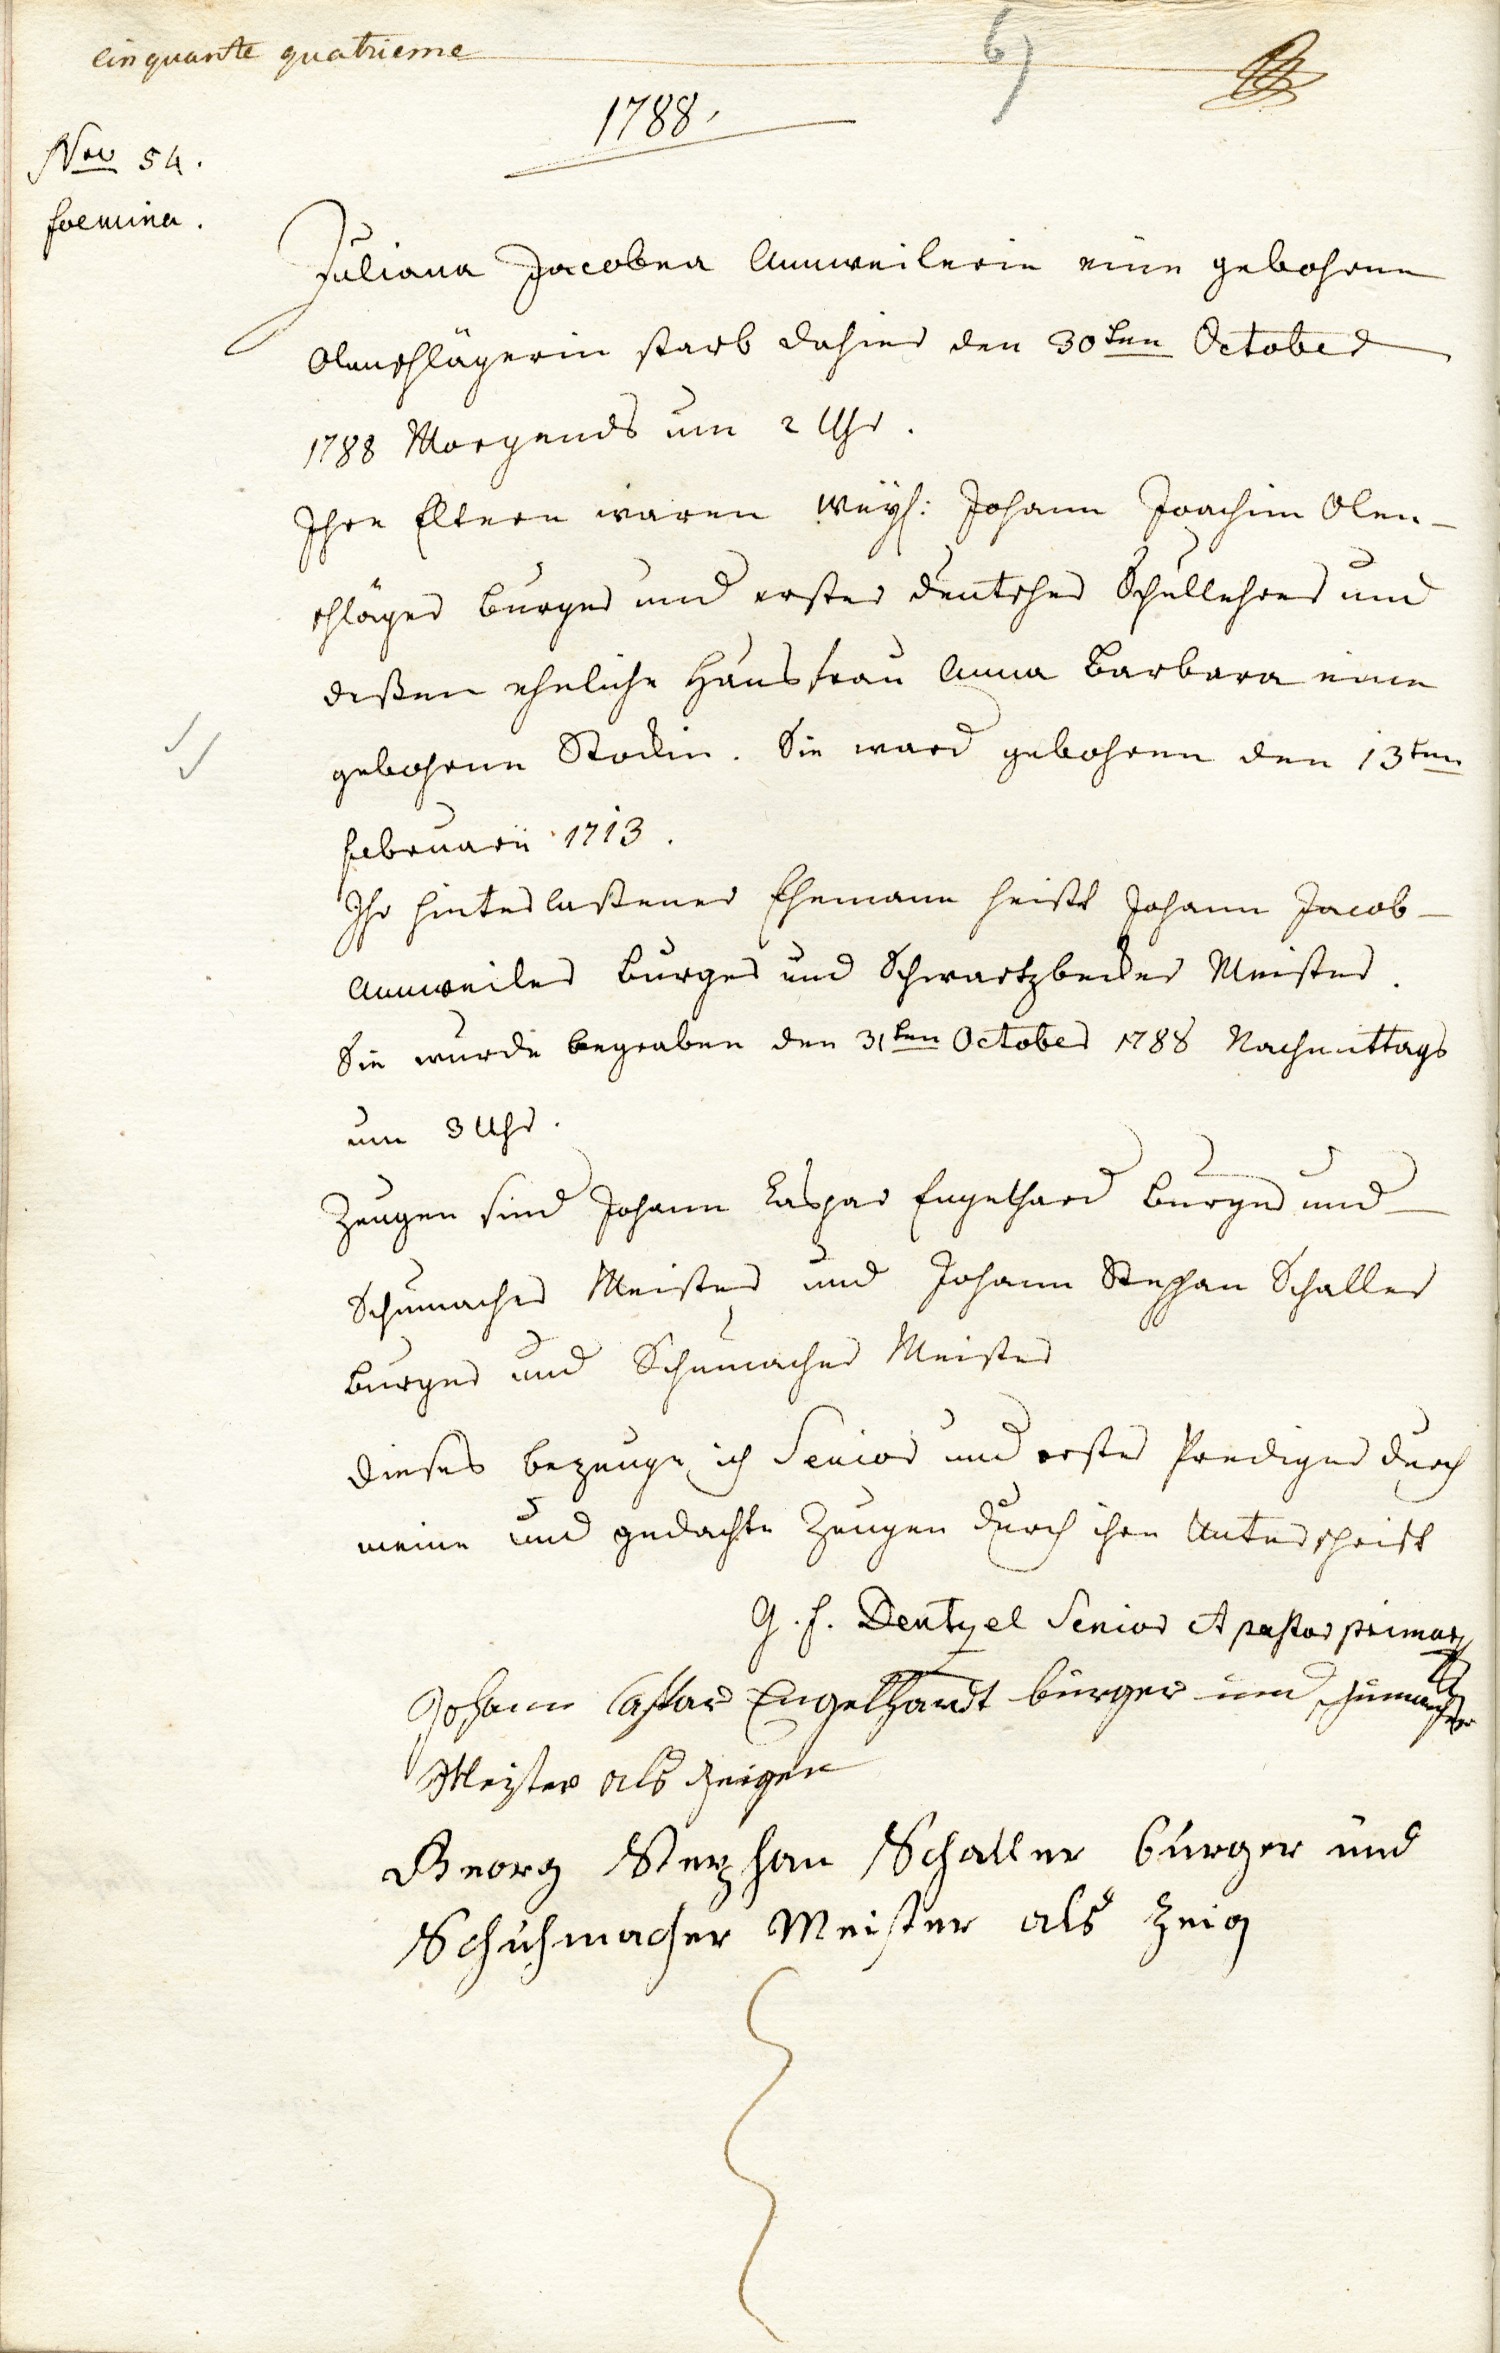 cinquante quatrieme
6)
1788.
Nro 54.
foemina.
Juliana Jacobea Annweilerin eine gebohrne
Olenschlägerin starb dahier den 30ten October
1788 Morgends um 2 Uhr.
Ihre Eltern waren weyl: Johann Joachim Olen-
schläger Burger und erster deutscher Schullehrer und
deßen eheliche Hausfrau Anna Barbara eine
gebohrne Stockin. Sie ward gebohren den 13ten
Februarii 1713.
Ihr hinterlaßener Ehemann heist Johann Jacob
Annweiler Burger und Schwartzbecker Meister.
Sie wurde begraben den 31ten October 1788 Nachmittags
um 3 Uhr.
Zeugen sind Johann Caspar Engelhard Burger und
Schumacher Meister und Johann Stephan Schaller
Burger und Schumacher Meister
Dieses bezeuge ich Senior und erster Prediger durch
meine und gedachte Zeugen durch ihre Unterschrift
G. F. Dentzel Senior et pastor primar
Johann Caspar Engelhardt burger und schumacher
Meister als zeigen
Georg Stephan Schaller burger und
Schuhmacher Meister als Zeig